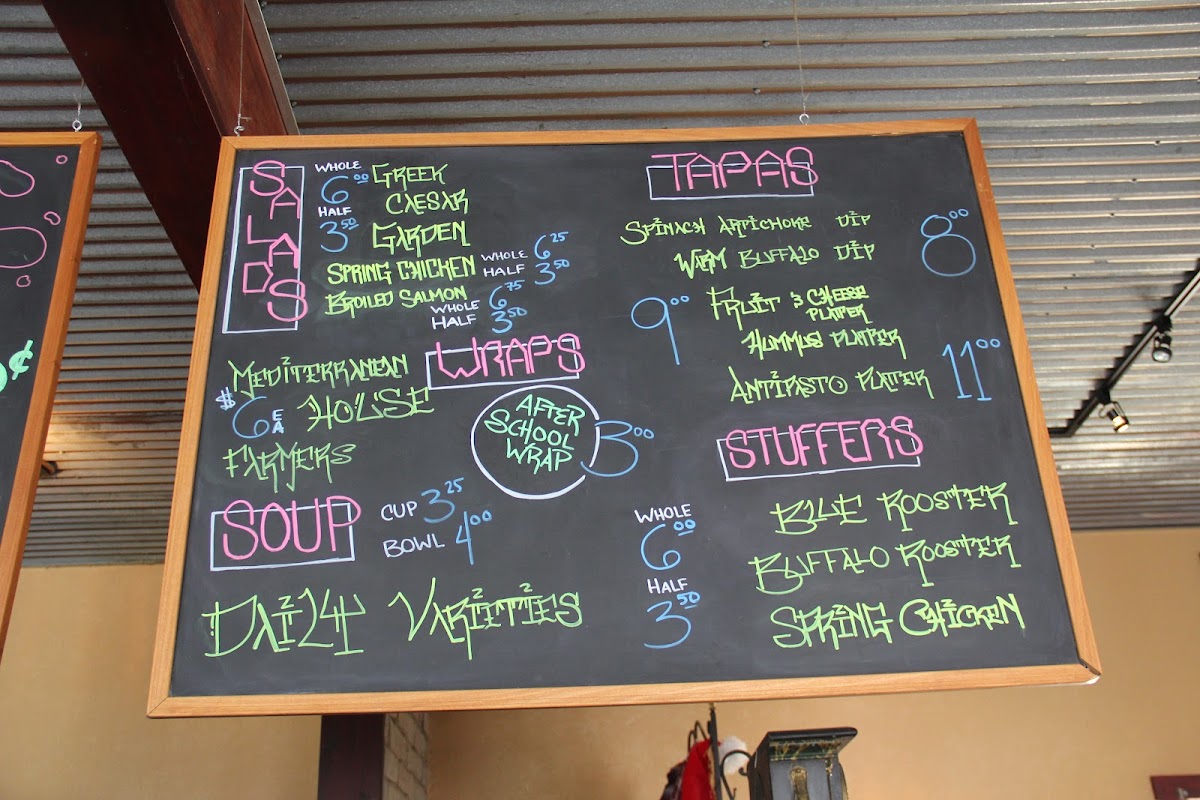 SALADS
WHOLE 6.00 GREEK
CAESAR
HALF 3.50 GARDEN
SPRING CHICKEN WHOLE 6.25
HALF 3.50
BROILED SALMON WHOLE 6.75
HALF 3.50
WRAPS
MEDITERRANEAN
$6 EA HOUSE
FARMERS
AFTER
SCHOOL
WRAP
3.00
SOUP
CUP 3.25
BOWL 4.00
DAILY VARIETIES
TAPAS
SPINACH ARTICHOKE DIP
WARM BUFFALO DIP
8.00
9.00 FRUIT & CHEESE
PLATTER
HUMMUS PLATTER
ANTIPASTO PLATER 11.00
STUFFERS
WHOLE
6.00
HALF
3.50
BLUE ROOSTER
BUFFALO ROOSTER
SPRING CHICKEN
¢